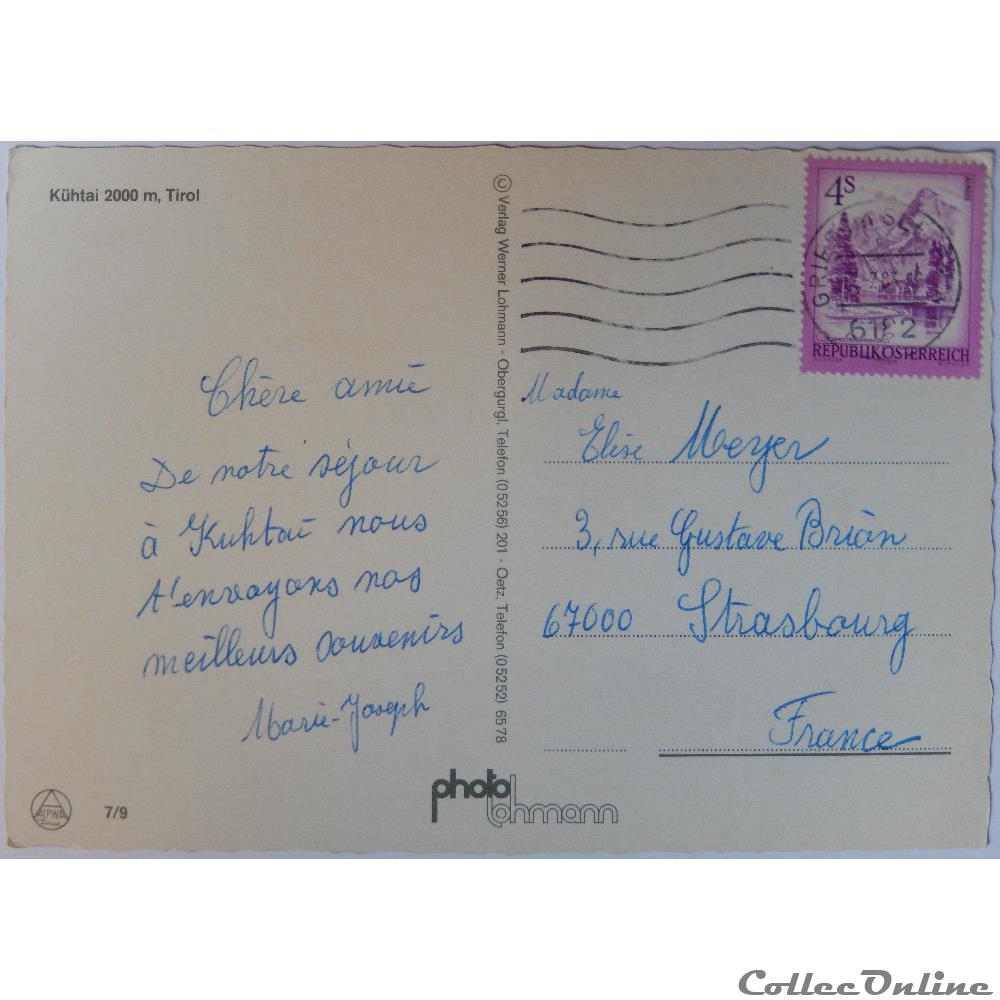 Kühtai 2000 m, Tirol
Chère amie
De notre séjour
à Kuhtaï nous
t'envoyons nos
meilleurs souvenirs
Marie-Joseph
ALPINA
7/9
© Verlag Werner Lohmann - Obergurgl, Telefon (05256) 201 - Oetz, Telefon (05252) 6578
photo
lohmann
4S
ALMSEE
6182
REPUBLIK ÖSTERREICH
Madame
Elise Meyer
3, rue Gustave Brion
67000 Strasbourg
France
CollecOnline